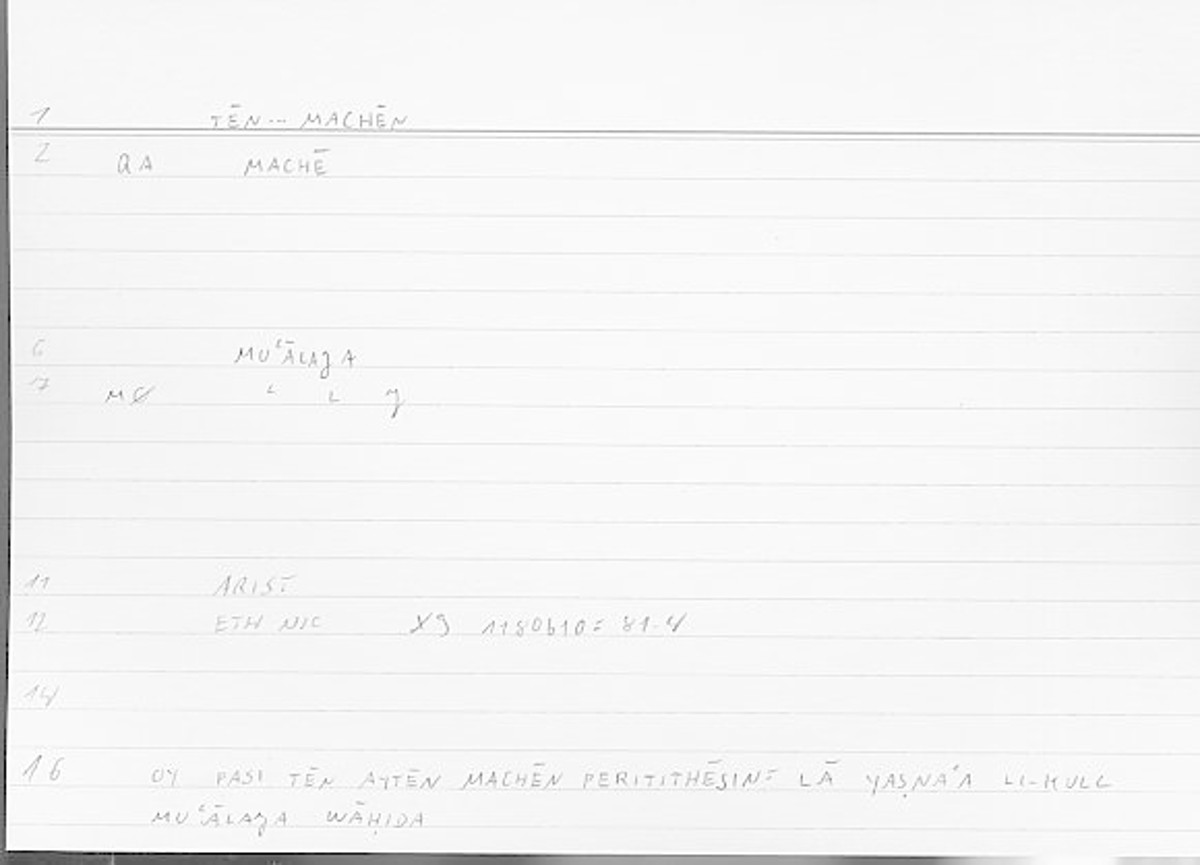 1 TĒN... MACHĒN
2 QA MACHĒ
6 MUʿĀLAJA
7 MØ ʿ L J
11 ARIST
12 ETH NIC X9 1180b10 = 81.4
14
16 OY PASI TĒN AYTĒN MACHĒN PERITITHĒSIN = LĀ YAṢNAʿA LI-KULL
MUʿĀLAJA WĀḤIDA